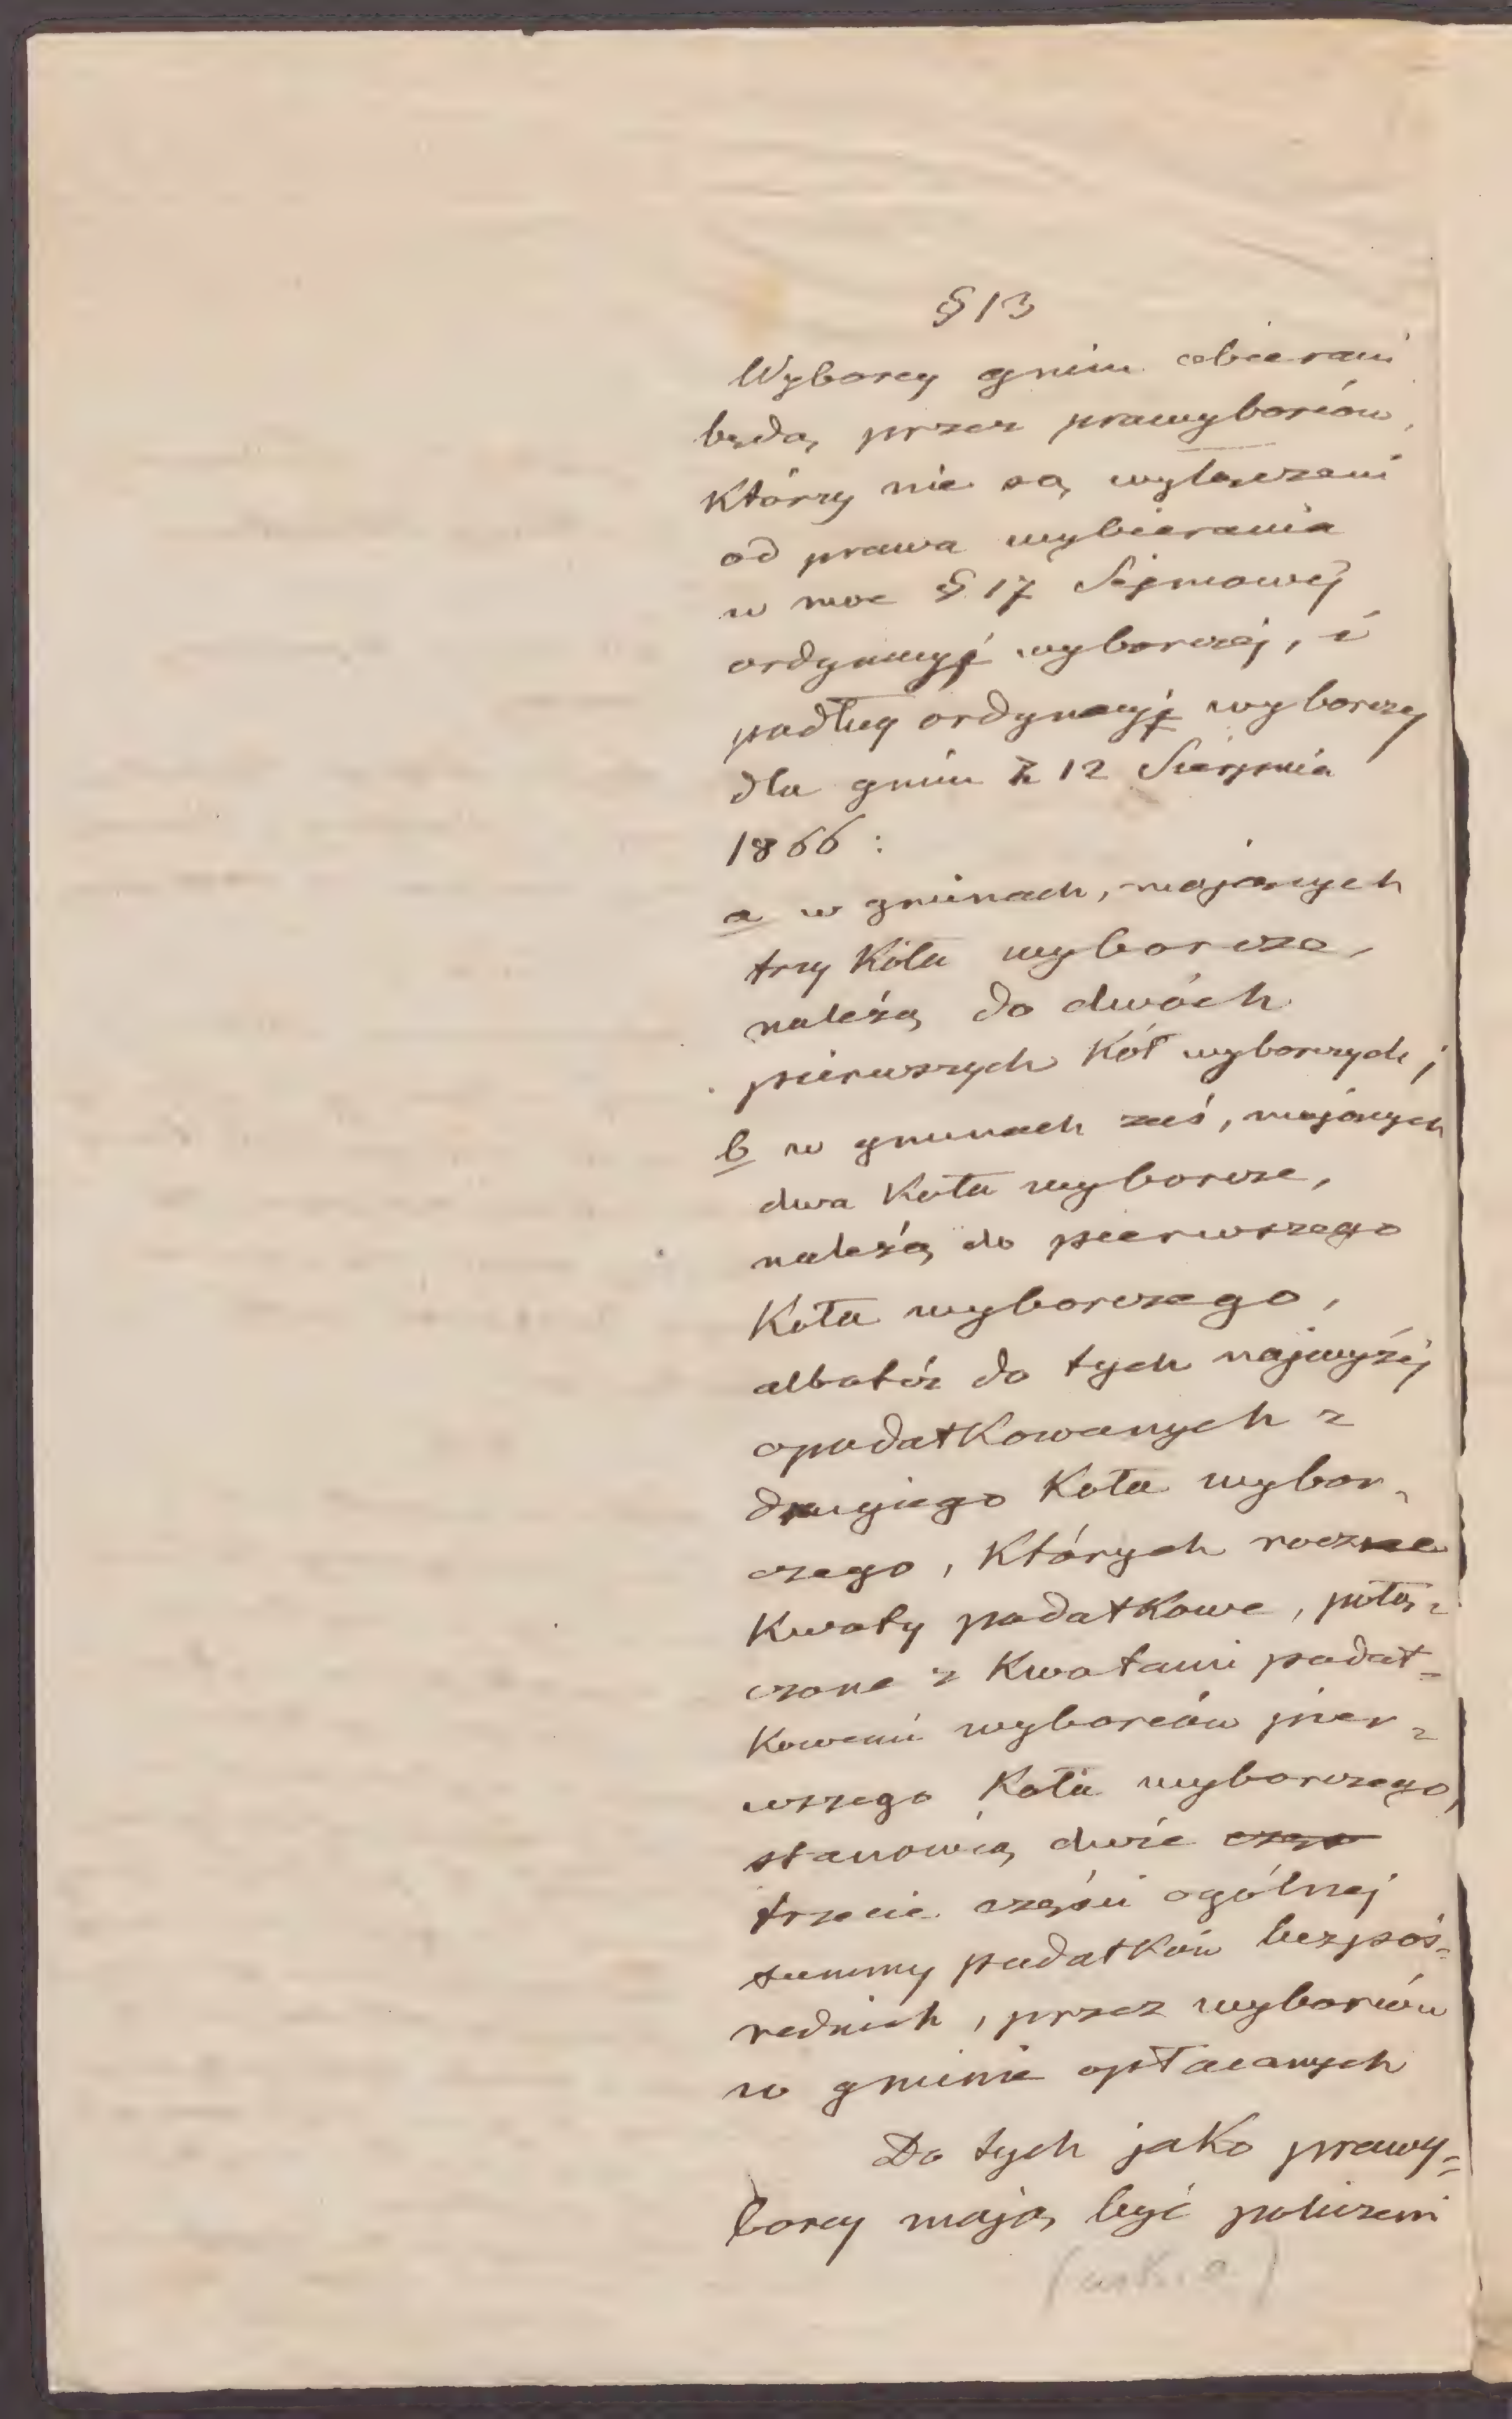 § 13
Wyborcy gmin obierani
będą przez prawyborców,
Którzy nie są wyłączeni
od prawa wybierania
w moc § 17 Sejmowéj
ordynacyj wyborczéj, i
podług ordynacyj wyborczej
dla gmin z 12 Sierpnia
1866 :
a w gminach, mających
trzy Koła wyborcze,
należą do dwóch
pierwszych Kół wyborczych;
b w gminach zaś, mających
dwa Koła wyborcze,
należą do pierwszego
Koła wyborczego,
albotéż do tych najwyżéj
opodatkowanych z
drugiego Koła wybor-
czego, Których roczne
Kwoty podatkowe, połą=
czone z Kwotami podat=
Kowemi wyborców pier=
wszego Koła wyborczego,
stanowią dwie częś
trzecie części ogólnej
summy podatków bezpoś=
rednich, przez wyborców
w gminie opłacanych
Do tych jako prawy=
borcy mają być policzeni